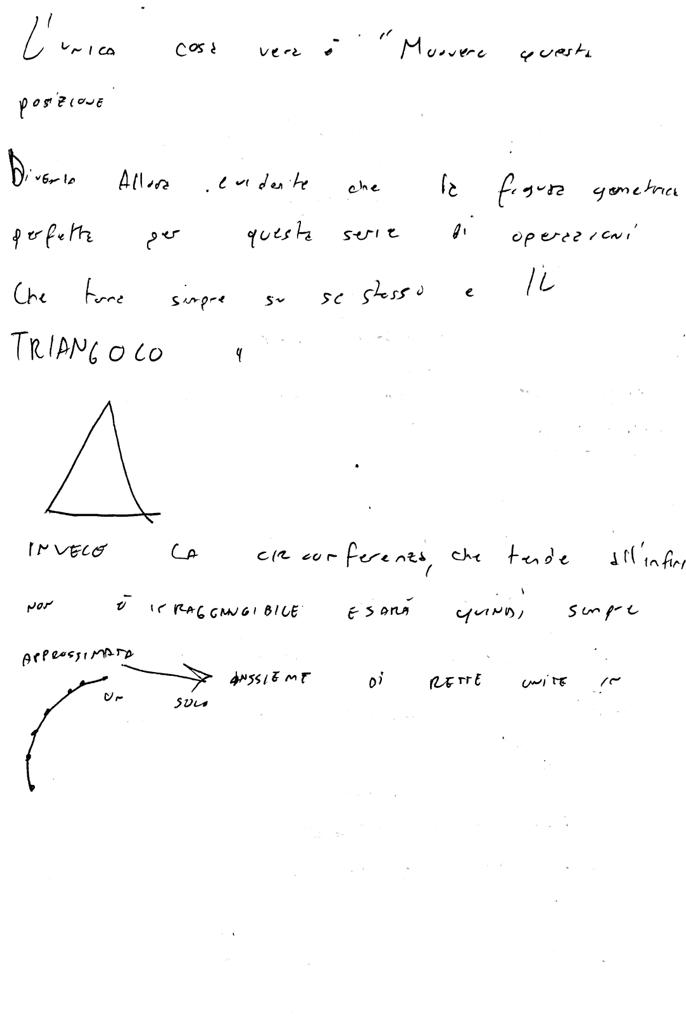 L'unica cosa vera è "Muovere questa
posizione
Diventa Allora evidente che la figura geometrica
perfetta per questa serie di operazioni
Che torna sempre su se stesso e IL
TRIANGOLO
INVECE LA circonferenza, che tende all'infini
non È IRRAGGIUNGIBILE E SARÀ QUINDI sempre
APPROSSIMATA
UN SOLO INSSIEME Di RETTE UNITE IN